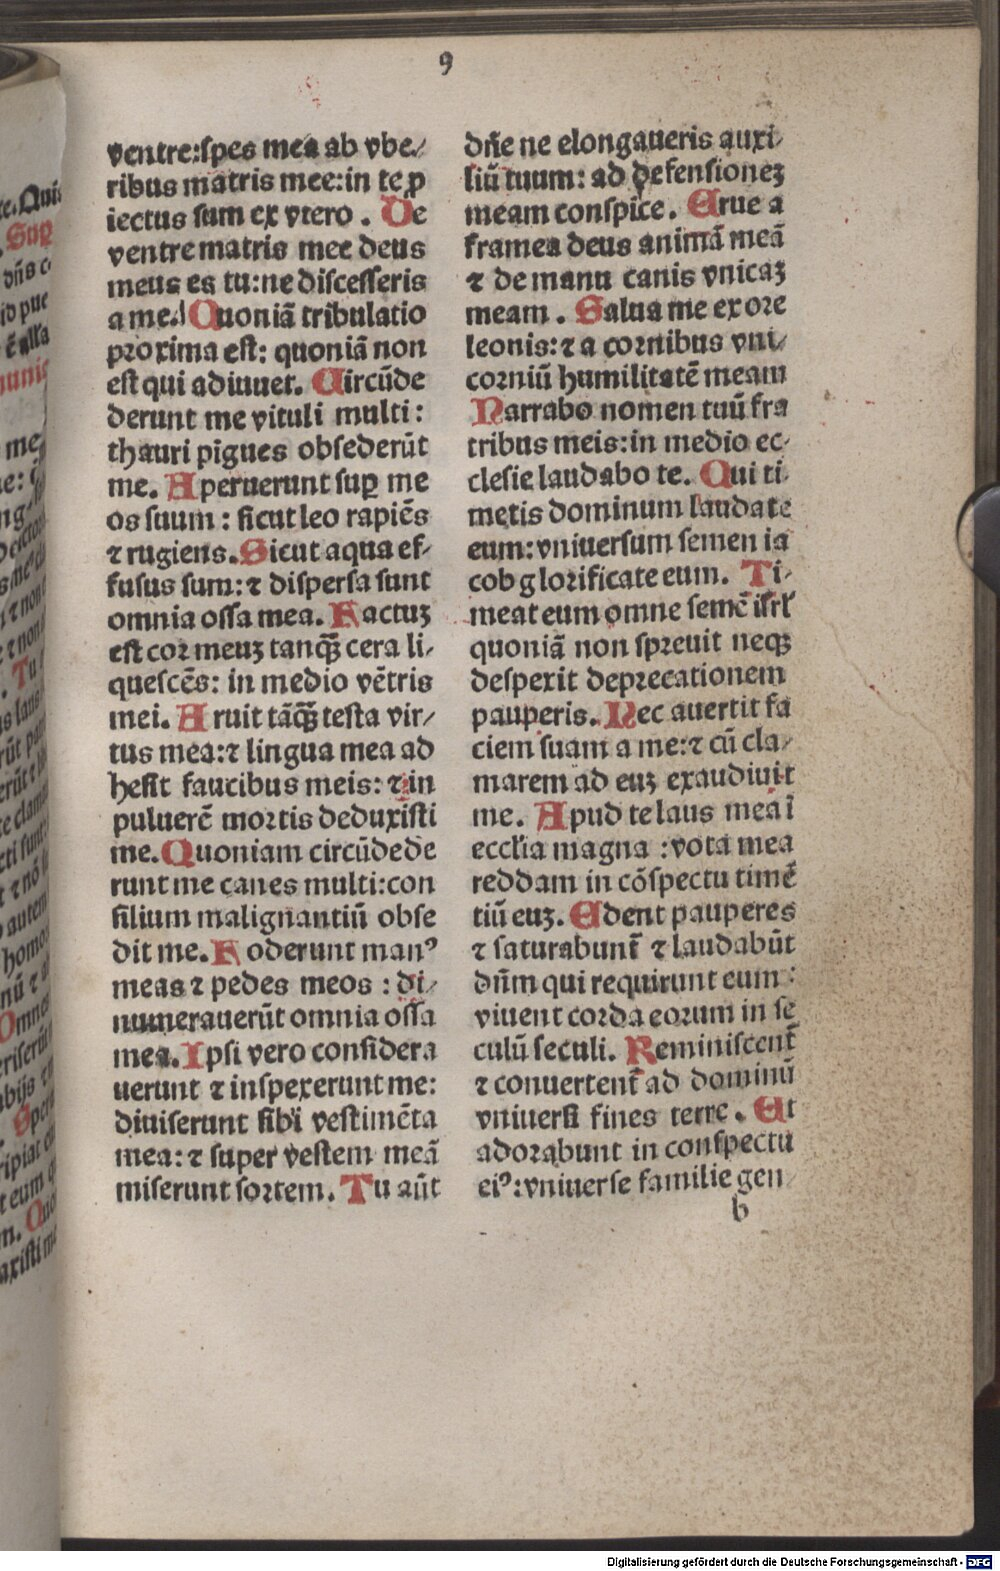 9
ventre:spes mea ab vbe/
ribus matris mee:in te ꝓ
iectus sum ex vtero. De
ventre matris mee deus
meus es tu:ne discesseris
a me. Quoniā tribulatio
proxima est: quoniā non
est qui adiuuet. Circūde
derunt me vituli multi:
thauri pīgues obsederūt
me. Aperuerunt suꝑ me
os suum: sicut leo rapiēs
⁊ rugiens. Sicut aqua ef/
fusus sum:⁊ dispersa sunt
omnia ossa mea. Factuꝫ
est cor meuꝫ tanqꝫ cera li/
quescēs: in medio vētris
mei. Aruit tāqꝫ testa vir/
tus mea:⁊ lingua mea ad
hesit faucibus meis: ⁊ in
puluerē mortis deduxisti
me. Quoniam circūdede
runt me canes multi:con
silium malignantiū obse
dit me. Foderunt manꝰ
meas ⁊ pedes meos: di/
numerauerūt omnia ossa
mea. Ipsi vero considera
uerunt ⁊ inspexerunt me:
diuiserunt sibi vestimēta
mea:⁊ super vestem meā
miserunt sortem. Tu aūt
dn̄e ne elongaueris auxi/
liū tuum: ad defensioneꝫ
meam conspice. Erue a
framea deus animā meā
⁊ de manu canis vnicaꝫ
meam. Salua me ex ore
leonis:⁊ a cornibus vni/
corniū humilitatē meam
Narrabo nomen tuū fra
tribus meis:in medio ec/
clesie laudabo te. Qui ti/
metis dominum laudate
eum:vniuersum semen ia
cob glorificate eum. Ti/
meat eum omne semē isrl̓
quoniā non spreuit neqꝫ
despexit deprecationem
pauperis. Nec auertit fa
ciem suam a me:⁊ cū cla/
marem ad euꝫ exaudiuit
me. Apud te laus mea ī
eccl̓ia magna :vota mea
reddam in cōspectu timē
tiū euꝫ. Edent pauperes
⁊ saturabunt̄ ⁊ laudabūt
dn̄m qui requirunt eum:
viuent corda eorum in se
culū seculi. Reminiscent̄
⁊ conuertent̄ ad dominū
vniuersi fines terre. Et
adorabunt in conspectu
eiꝰ:vniuerse familie gen/
b
Digitalisierung gefördert durch die Deutsche Forschungsgemeinschaft - DFG